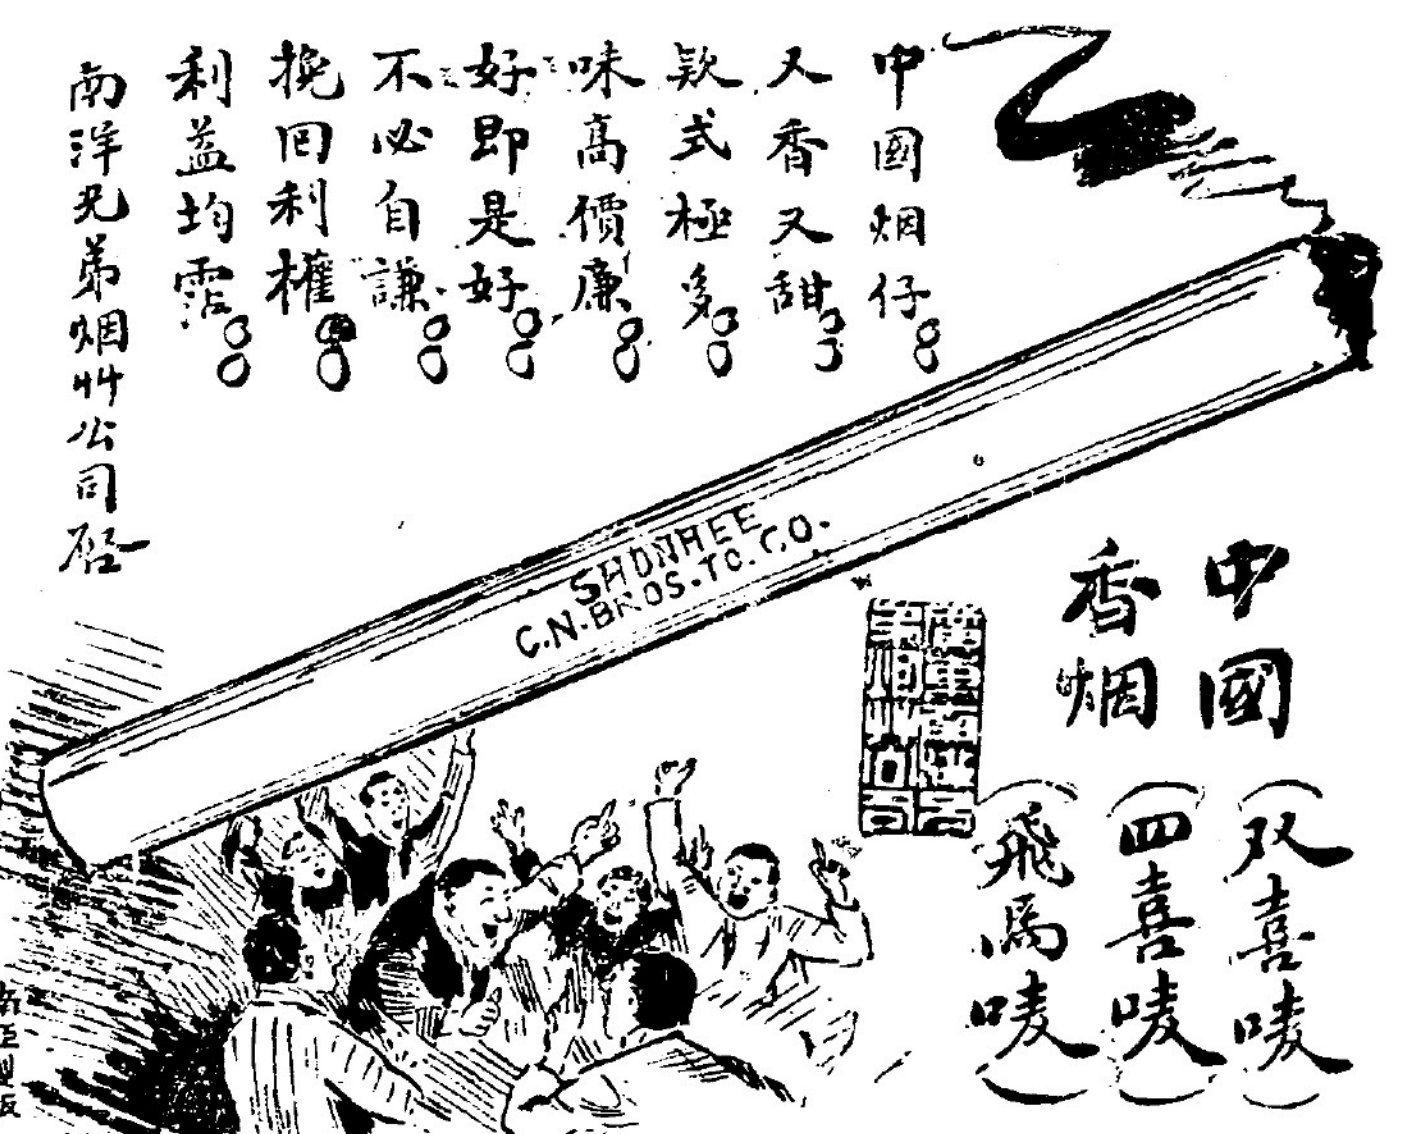 中國烟仔
又香又甜
欵式極多
味高價廉
好即是好
不必自謙
挽囘利權
利益均霑
南洋兄弟烟艸公司啓
SHUNHEE
C.N.BROS.TO.CO.
中國
香烟
(双喜唛)
(四喜唛)
(飛馬唛)